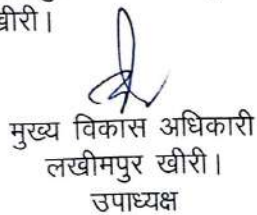 खीरी।
मुख्य विकास अधिकारी
लखीमपुर खीरी।
उपाध्यक्ष